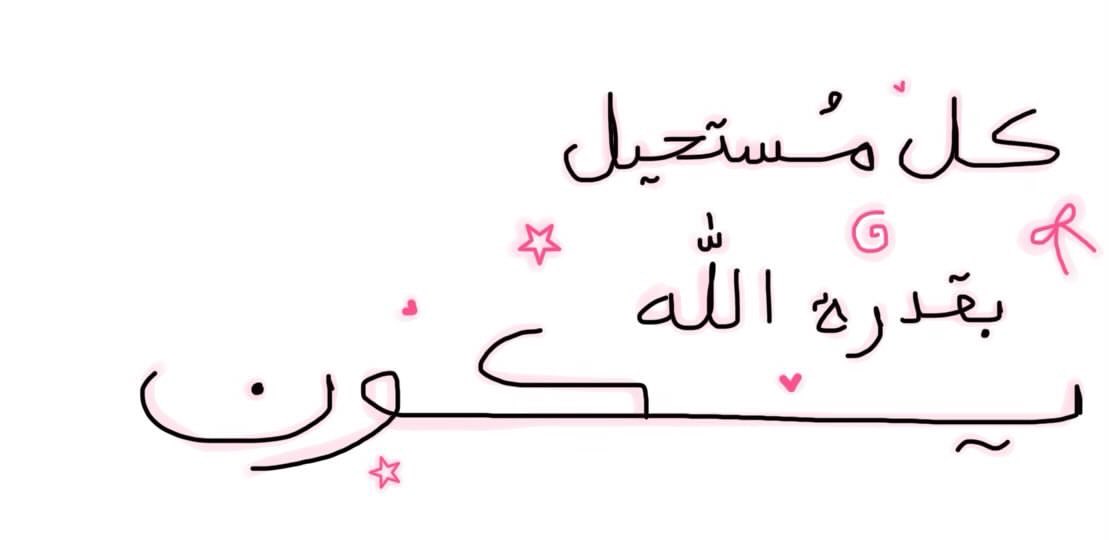 كل مُستحيل
بقدرة اللّه
يكون